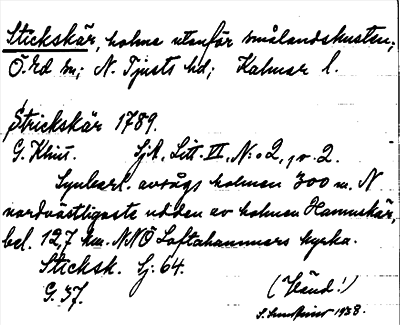 Stickskär, holme utanför Smålandskusten;
Ö. Ed sn; N. Tjusts hd; Kalmar l.
Strickskär 1789.
G. Klint. SjA, Litt. VI, N:o 2, p. 2.
Synbarl. avsågs holmen 300 m. N
nordvästligaste udden av holmen Hamnskär,
bel. 12,7 km. NNÖ Loftahammars kyrka.
Sticksk. Sj. 64.
G. 37.
(Vänd!)
1938.